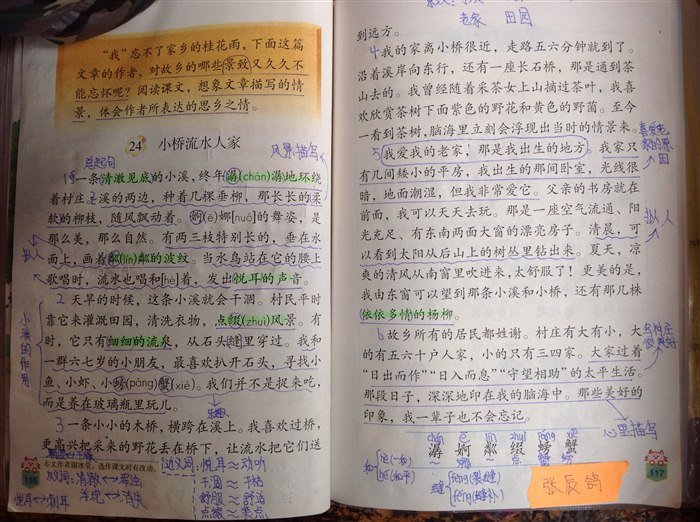 “我”忘不了家乡的桂花雨,下面这篇
文章的作者,对故乡的哪些景致又久久不
能忘怀呢?阅读课文,想象文章描写的情
景,体会作者所表达的思乡之情。
24 小桥流水人家
风景描写
总起句
1一条清澈见底的小溪,终年潺(chán)潺地环绕
着村庄。溪的两边,种着几棵垂柳,那长长的柔
软的柳枝,随风飘动着。婀(ē)娜[nuó]的舞姿,是
那么美,那么自然。有两三枝特别长的,垂在水
面上,画着粼(lín)粼的波纹。当水鸟站在它的腰上
歌唱时,流水也唱和[hè]着,发出悦耳的声音。
拟人
2 天旱的时候,这条小溪就会干涸。村民平时
靠它来灌溉田园,清洗衣物,点缀(zhuì)风景。有
时,它只有细细的流泉,从石头缝里穿过。我和
一群六七岁的小朋友,最喜欢扒开石头,寻找小
鱼、小虾、小螃(páng)蟹(xiè)。我们并不是捉来吃,
而是养在玻璃瓶里玩儿。
小溪的作用
乐趣
3 一条小小的木桥,横跨在溪上。我喜欢过桥,
更高兴把采来的野花丢在桥下,让流水把它们送
本文作者谢冰莹,选作课文时有改动。
116
近义词:悦耳≈动听
干涸≈干枯
舒服≈舒适
反义词:清澈↔浑浊
悦耳↔刺耳 浮现↔消失
老家 田园
到远方。
4我的家离小桥很近,走路五六分钟就到了。
沿着溪岸向东行,还有一座长石桥,那是通到茶
山去的。我曾经随着采茶女上山摘过茶叶,我喜
欢欣赏茶树下面紫色的野花和黄色的野菌。至今
一看到茶树,脑海里立刻会浮现出当时的情景来。
5我爱我的老家,那是我出生的地方。我家只
有几间矮小的平房,我出生的那间卧室,光线很
暗,地面潮湿,但我非常爱它。父亲的书房就在
前面,我可以天天去玩。那是一座空气流通、阳
光充足、有东南两面大窗的漂亮房子。清晨,可
以看到太阳从后山上的树丛里钻出来。夏天,凉
爽的清风从南窗里吹进来,太舒服了!更美的是,
我由东窗可以望到那条小溪和小桥,还有那几株
依依多情的杨柳。
喜爱老家的原因
拟人
6 故乡所有的居民都姓谢。村庄有大有小,大
的有五六十户人家,小的只有三四家。大家过着
“日出而作”“日入而息”“守望相助”的太平生活。
那段日子,深深地印在我的脑海中。那些美好的
印象,我一辈子也不会忘记。
心里描写
潺 婀 粼 缀 螃 蟹
和 hè(一和) hé(和平)
缝 fèng(裂缝) féng(缝补)
张辰鸽
117